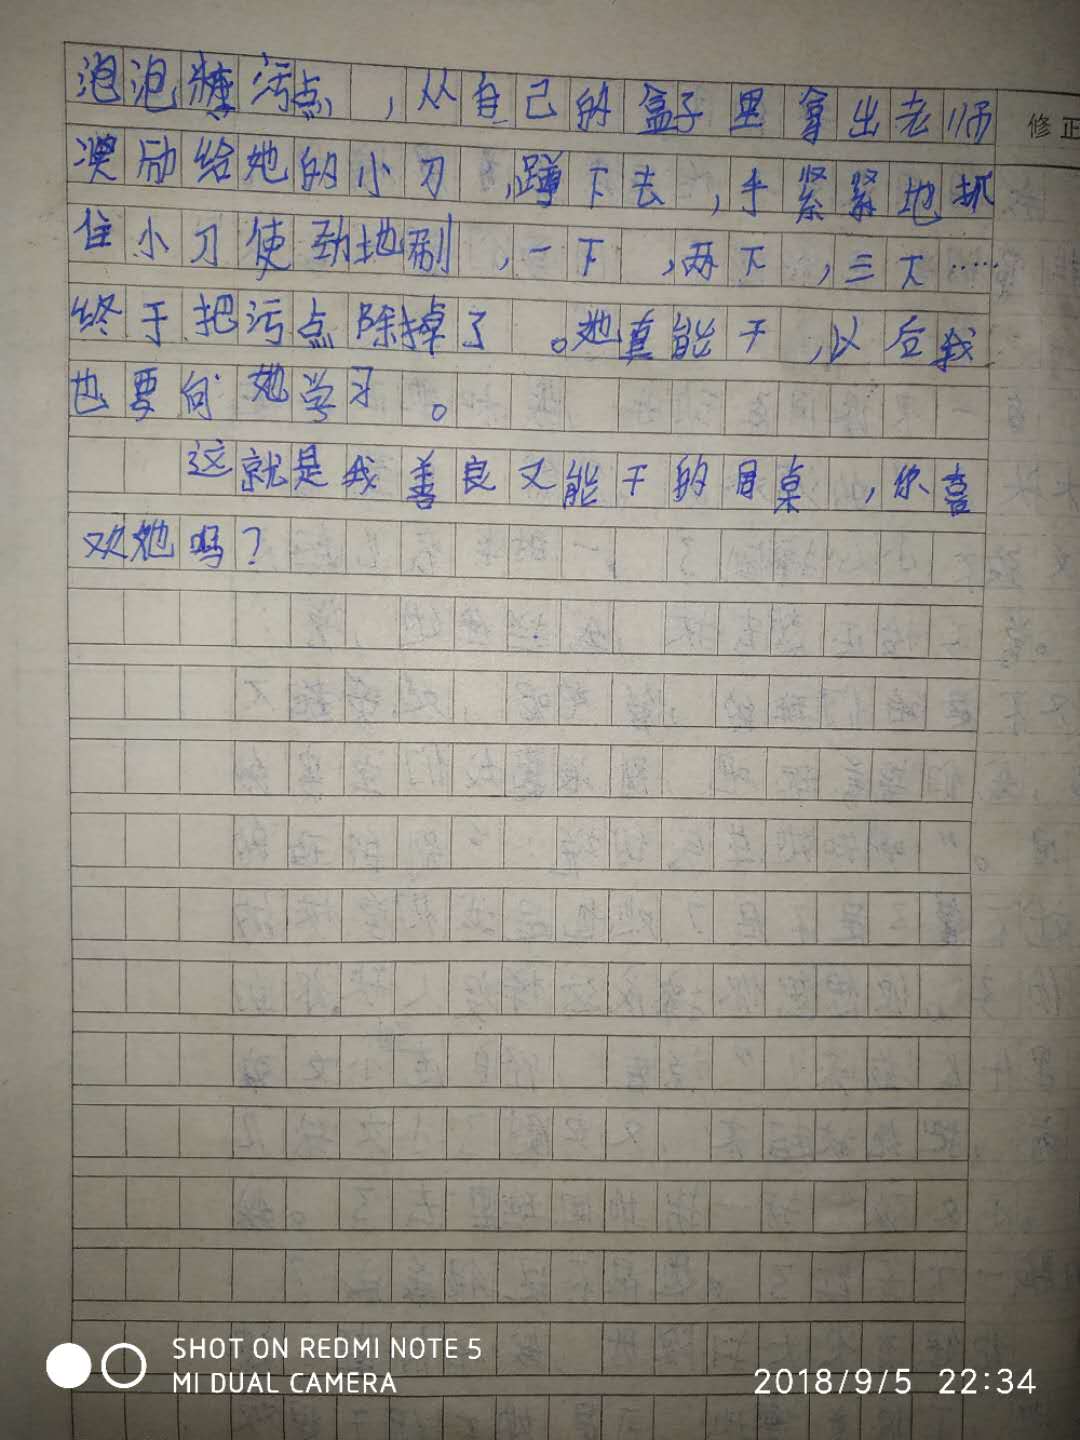 泡泡糖污点，从自己的盒子里拿出老师
修正
奖励给她的小刀，蹲下去，手紧紧地抓
住小刀使劲地刮，一下，两下，三下……
终于把污点除掉了。她真能干，以后我
也要向她学习。
这就是我善良又能干的同桌，你喜
欢她吗？
SHOT ON REDMI NOTE 5
MI DUAL CAMERA
2018/9/5 22:34